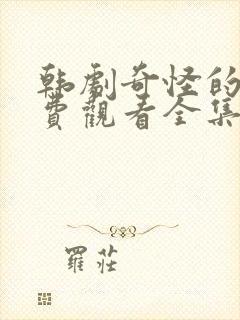 韩劇奇怪的
費觀看全集
羅莊